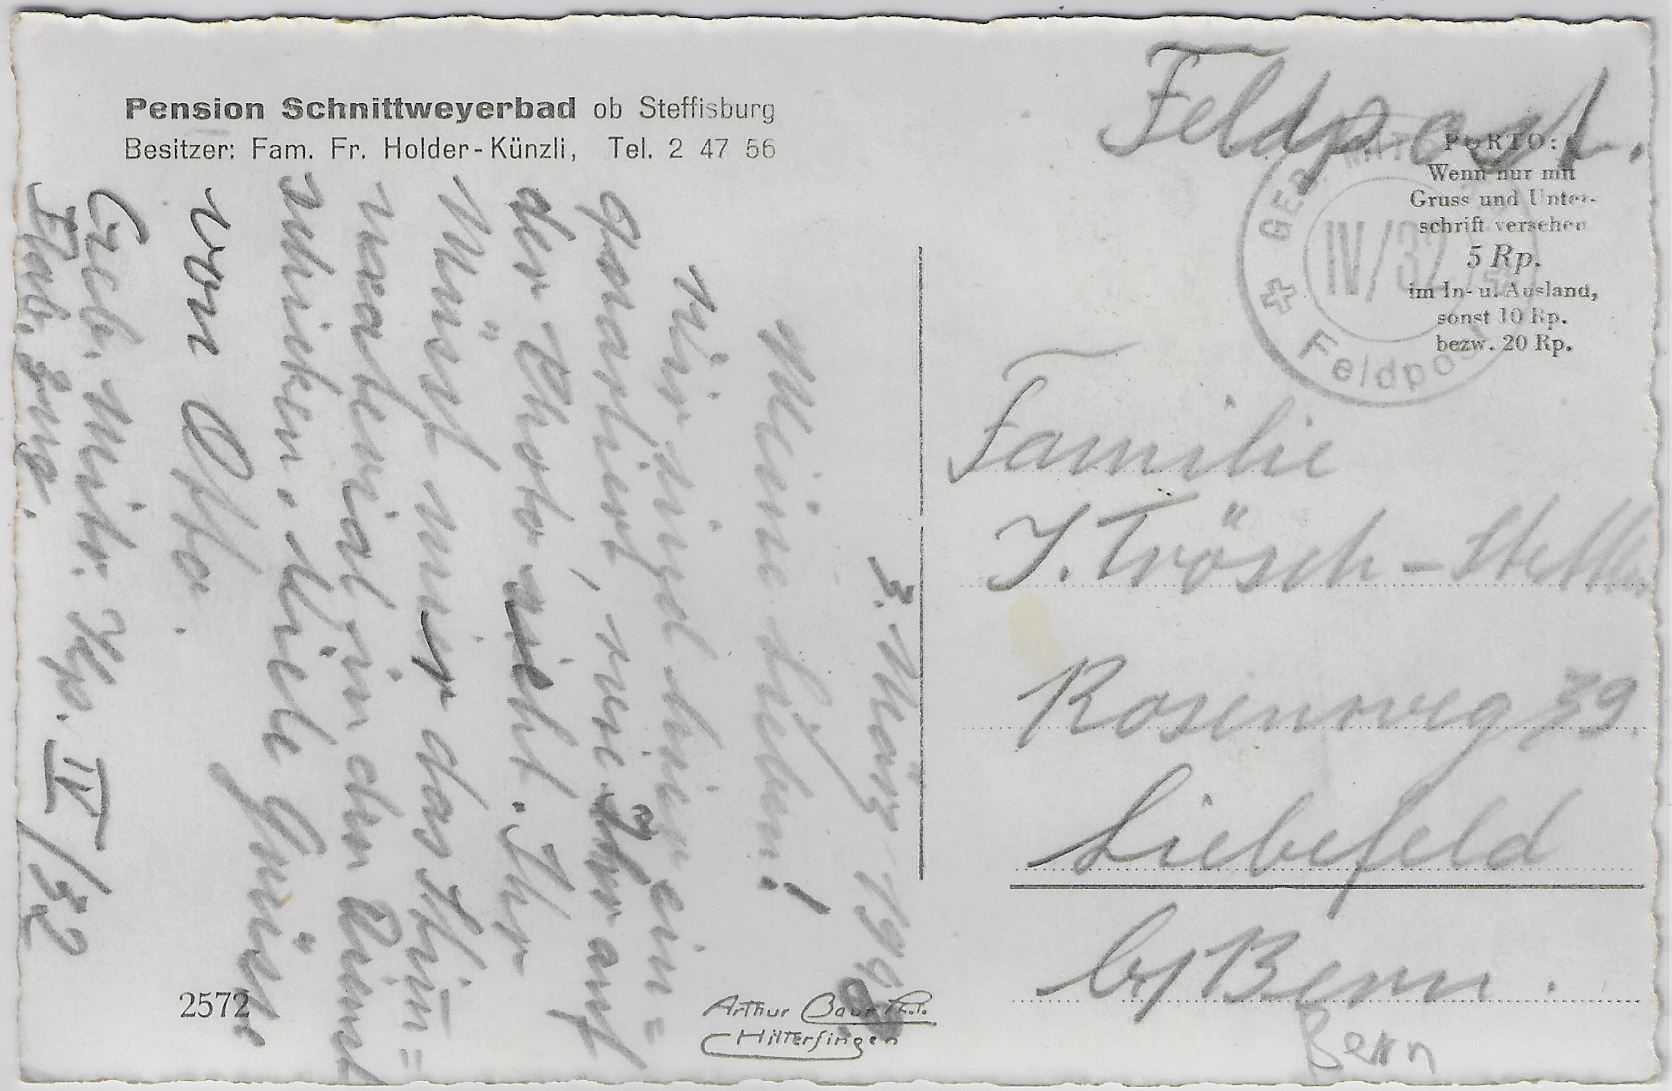 Pension Schnittweyerbad ob Steffisburg
Besitzer: Fam. Fr. Holder-Künzli, Tel. 2 47 56
3. März 1940
Meine Lieben!
Wir sind hier ein=
quartiert, wie Ihr auf
der Photo seht. Ihr
müsst mir das
in den
schicken. Viele Grüsse
von Otto.
Geb. Mitr. Kp. IV/32
Feldpost.
PORTO:
Wenn nur mit
Gruss und Unter-
schrift versehen
5 Rp.
im In- u. Ausland,
sonst 10 Rp.
bezw. 20 Rp.
GEB. MITR.
IV/32
Feldpost
Familie
J. Trösch-
Rosenweg 39.
Liebefeld
b/Bern.
Bern
2572
Arthur Baur Phot.
Hilterfingen